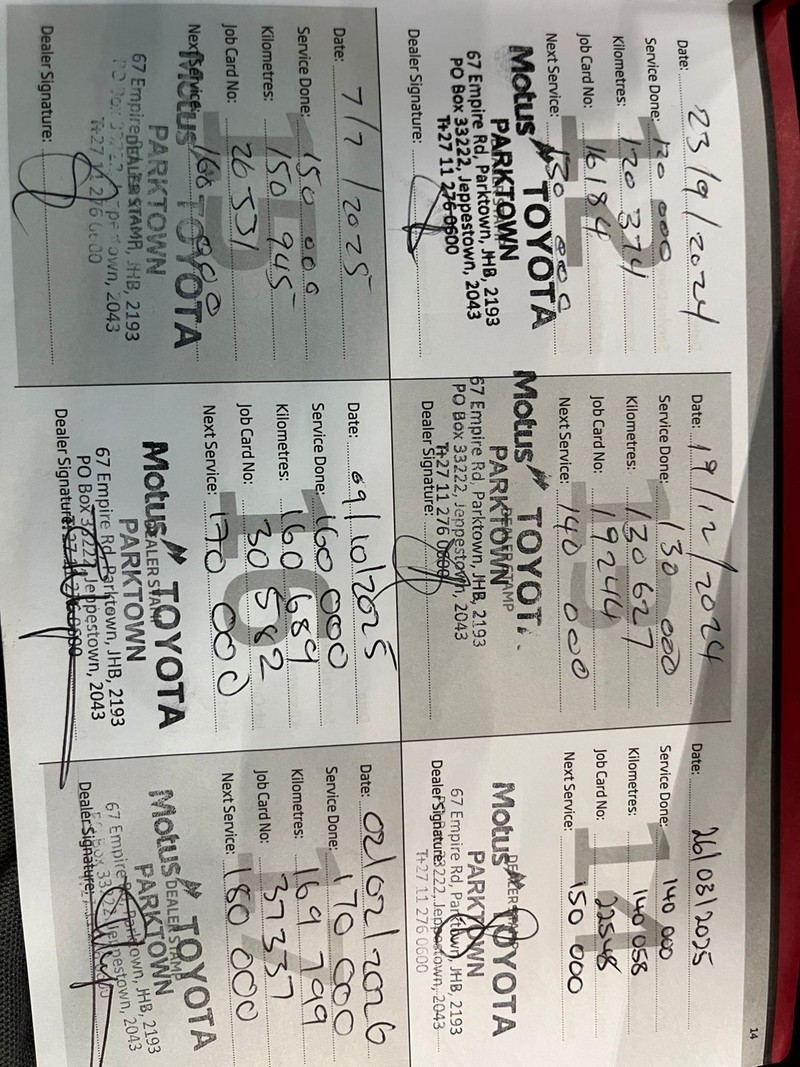 14
12
Date: 23/9/2024
Service Done: 120 000
Kilometres: 120 374
Job Card No: 16184
Next Service: 130 000
Motus TOYOTA
PARKTOWN
67 Empire Rd, Parktown, JHB, 2193
PO Box 33222, Jeppestown, 2043
T+27 11 276 0600
Dealer Signature:
13
Date: 19/12/2024
Service Done: 130 000
Kilometres: 130 627
Job Card No: 19244
Next Service: 140 000
Motus TOYOTA
DEALER STAMP
PARKTOWN
67 Empire Rd, Parktown, JHB, 2193
PO Box 33222, Jeppestown, 2043
T+27 11 276 0600
Dealer Signature:
14
Date: 26/03/2025
Service Done: 140 000
Kilometres: 140 058
Job Card No: 22548
Next Service: 150 000
Motus TOYOTA
DEALER
PARKTOWN
67 Empire Rd, Parktown, JHB, 2193
Jeppestown, 2043
Dealer Signature:
T+27 11 276 0600
15
Date: 7/7/2025
Service Done: 150 000
Kilometres: 150 945
Job Card No: 26531
Next Service: 160 000
Motus TOYOTA
PARKTOWN
DEALER STAMP
67 Empire Rd, Parktown, JHB, 2193
PO Box 33222, Jeppestown, 2043
T+27 11 276 0600
Dealer Signature:
16
Date: 09/10/2025
Service Done: 160 000
Kilometres: 160 689
Job Card No: 30582
Next Service: 170 000
Motus TOYOTA
DEALER STAMP
PARKTOWN
67 Empire Rd, Parktown, JHB, 2193
PO Box 33222, Jeppestown, 2043
Dealer Signature:
T+27 11 276 0600
17
Date: 02/02/2026
Service Done: 170 000
Kilometres: 169 799
Job Card No: 37337
Next Service: 180 000
Motus TOYOTA
DEALER STAMP
PARKTOWN
67 Empire Rd, Parktown, JHB, 2193
PO Box 33222, Jeppestown, 2043
Dealer Signature: